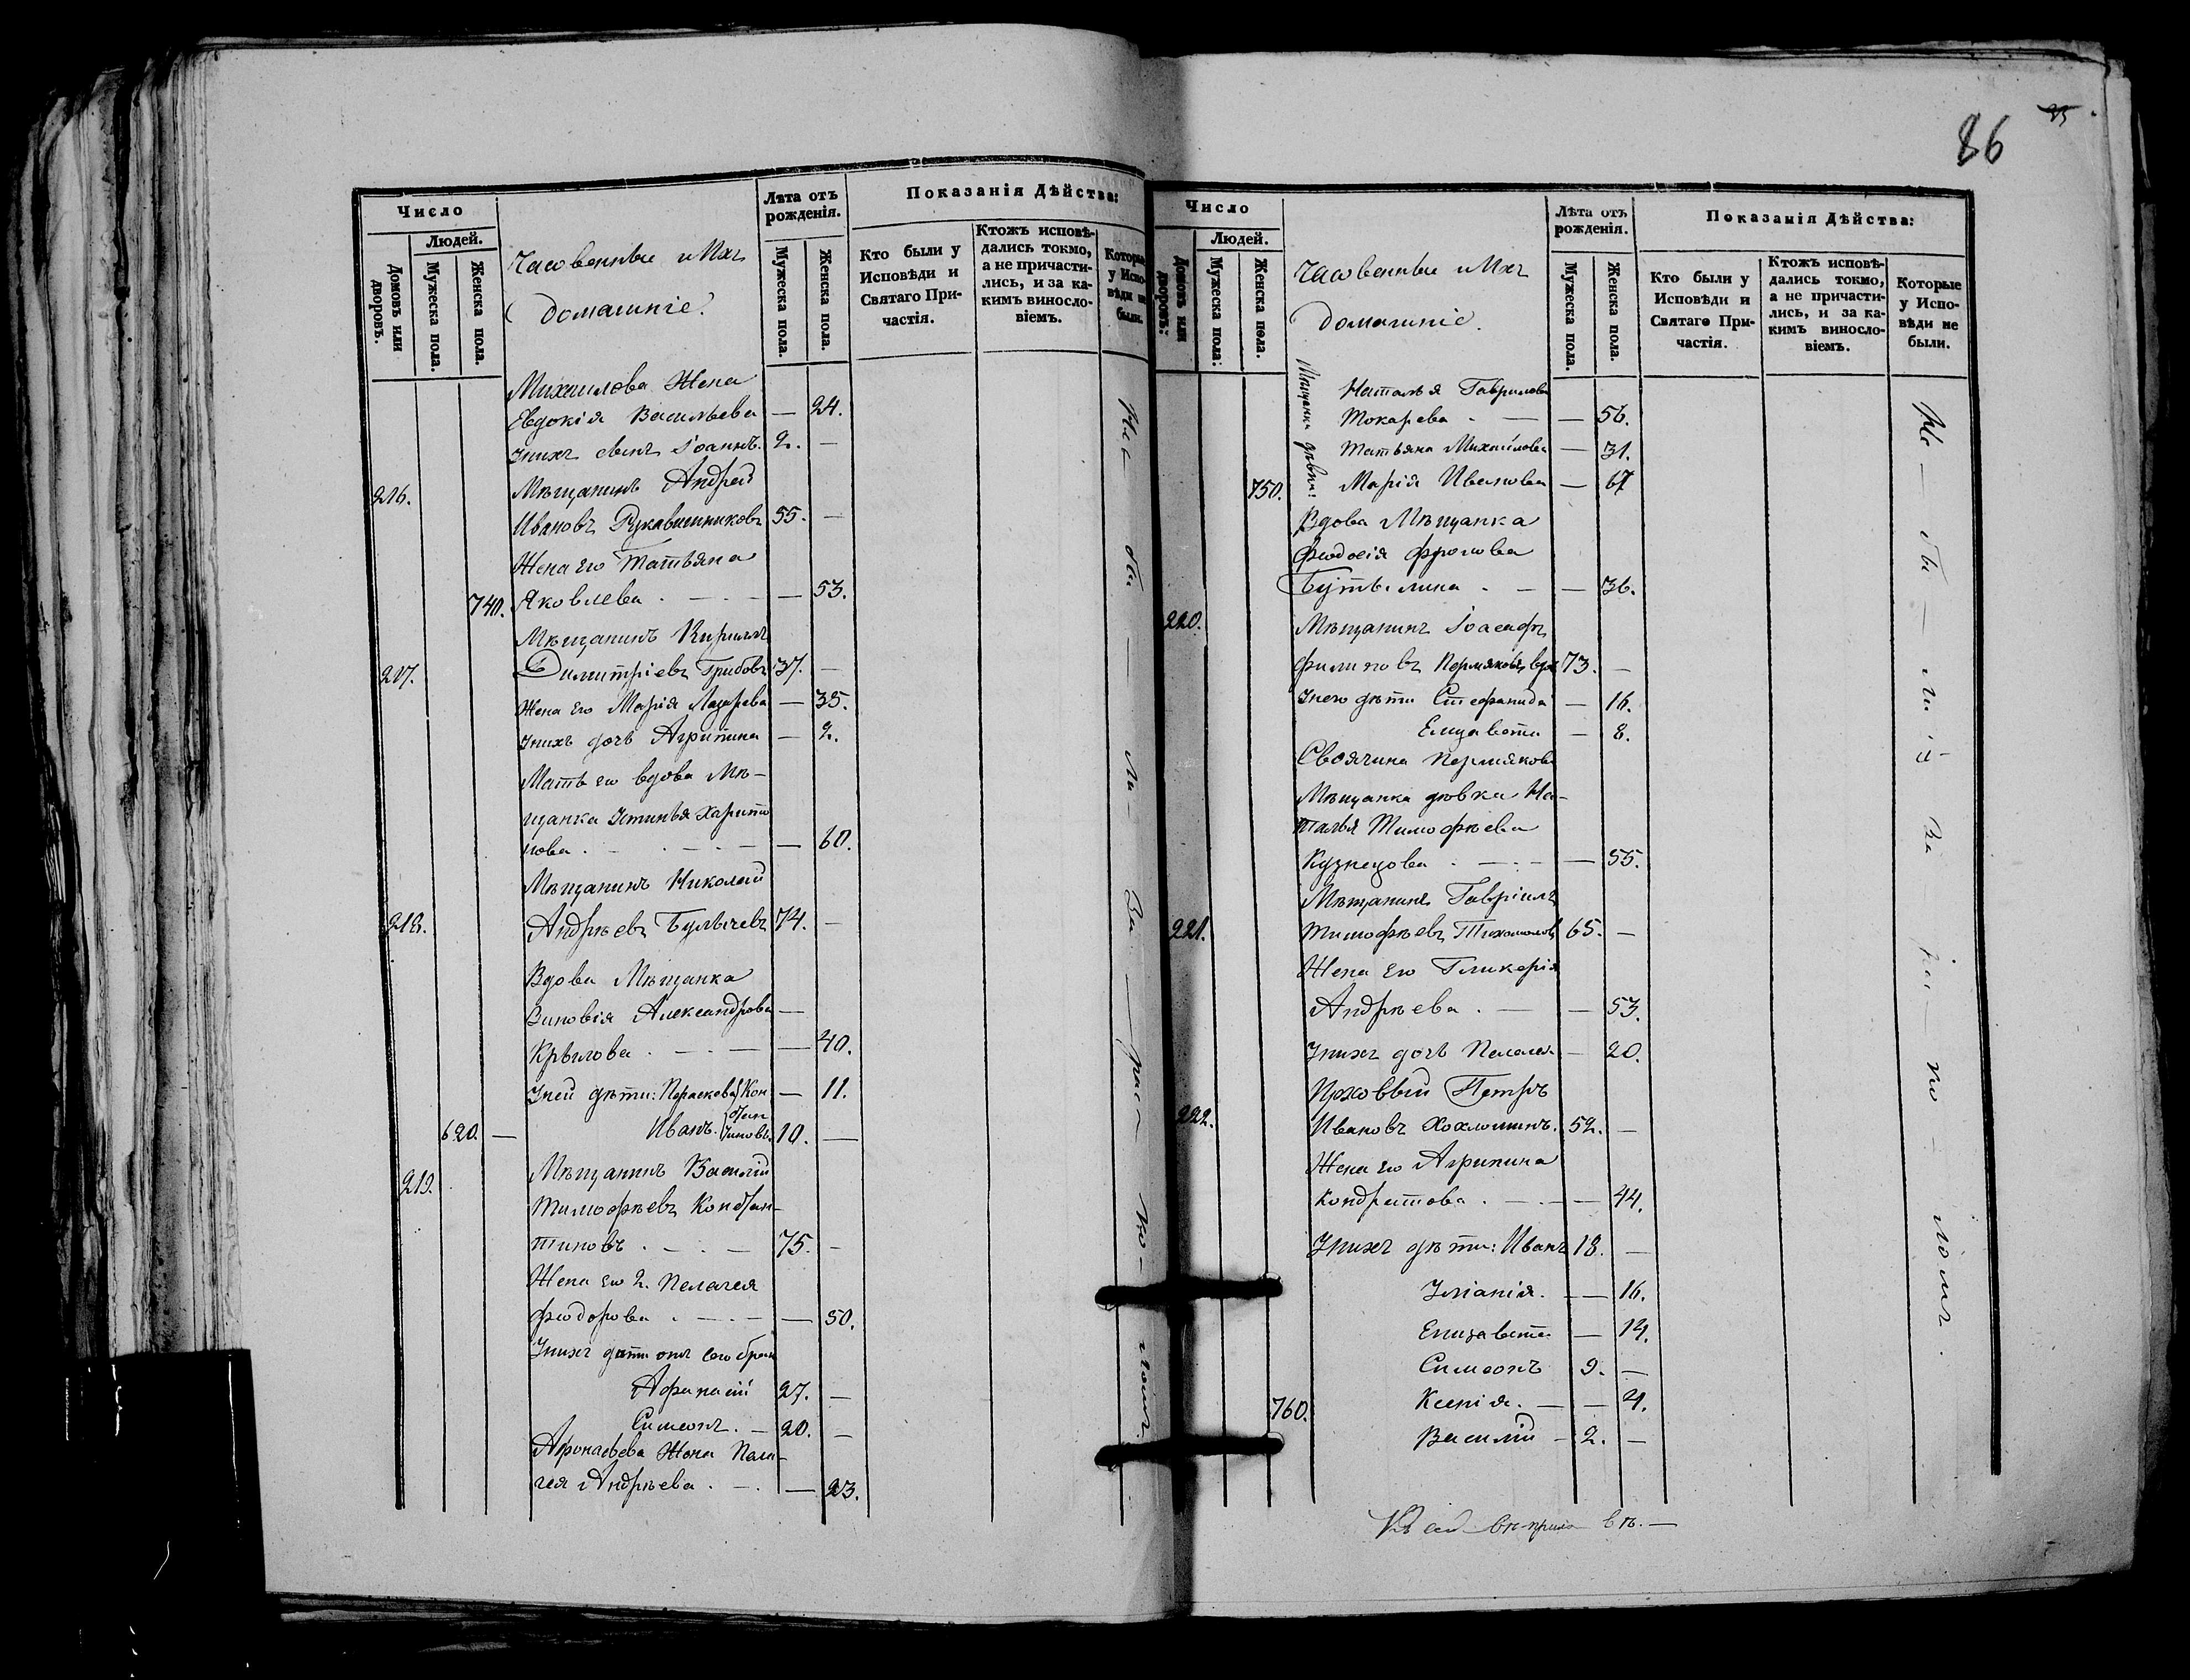 Число
Людей.
Домовъ или дворовъ.
Мужеска пола.
Женска пола.
Часовенные и Ихъ
домашніе.
Лѣта отъ рожденія.
Мужеска пола.
Женска пола.
Показанія Дѣйства:
Кто были у Исповѣди и Святаго Причастія.
Ктожъ исповѣдались токмо, а не причастились, и за какимъ винословіемъ.
Которые у Исповѣди не были.
Михаилова Жена
Евдокія Васильева — 24.
У нихъ сынъ Іоаннъ. 2. —
216. Мѣщанинъ Андрей
Ивановъ Рукавишниковъ 55. —
Жена его Татьяна
740. Яковлева . — . — — 53.
Мѣщанинъ Кириллъ
217. Димитріевъ Грибовъ 37. —
Жена его Марія Лазарева — 35.
У нихъ дочь Агрипина — 2.
Мать его вдова Мѣ-
щанка Устинья Харито
нова . — . — . — — 60.
Мѣщанинъ Николай
218. Андрѣевъ Булычевъ 74. —
Вдова Мѣщанка
Зиновія Александрова —
Крылова . — . — — 40.
У ней дѣти: Параскева Кон — 11.
620. — Иванъ. стан тиновы. 10. —
219. Мѣщанинъ Василій
Тимофѣевъ Констан-
тиновъ . — . — 75. —
Жена его 2. Пелагея
Феодорова . — . — — 50.
У нихъ дѣти отъ 1го брака
Афанасій 27. —
Симеонъ. — 20. —
Афонасьева Жена Пела-
гея Андрѣева . — . — 23.
Не — бы — ли — За — рас — ко — ломъ.
86
Число
Людей.
Домовъ или дворовъ:
Мужеска пола:
Женска пола.
Часовенные и Ихъ
домашніе.
Лѣта отъ рожденія.
Мужеска пола.
Женска пола.
Показанія Дѣйства:
Кто были у Исповѣди и Святаго Причастія.
Ктожъ исповѣдались токмо, а не причастились, и за какимъ винословіемъ.
Которые у Исповѣди не были.
Мѣщанки дѣвки:
Наталья Гаврилова
Токарева . — — 56.
Татьяна Михайлова — 31.
750. Марія Иванова — 67
Вдова Мѣщанка
Феодосія Фролова
Бутылина . — — 36.
220. Мѣщанинъ Іоасафъ
Филиповъ Пермяковъ вдов 73. —
У него дѣти Стефанида — 16.
Елизавета — 8.
Своячина Пермякова
Мѣщанка дѣвка На-
талья Тимофѣева
Кузнецова . — . — — 55.
Мѣщанинъ Гавріилъ
221. Тимофѣевъ Тихомоловъ 65. —
Жена его Гликерія
Андрѣева . — — 53.
У нихъ дочь Пелагея — 20.
Цѣховый Петръ
222. Ивановъ Хохлошинъ. 52. —
Жена его Агрипина
Кондратова . — . — — 44.
У нихъ дѣти: Иванъ 18. —
Уліанія. — — 16.
Елизавета — 14.
Симеонъ 9. —
760. Ксенія. — — 4.
Василій — 2. —
Не — бы — ли За рас — ко — ломъ.